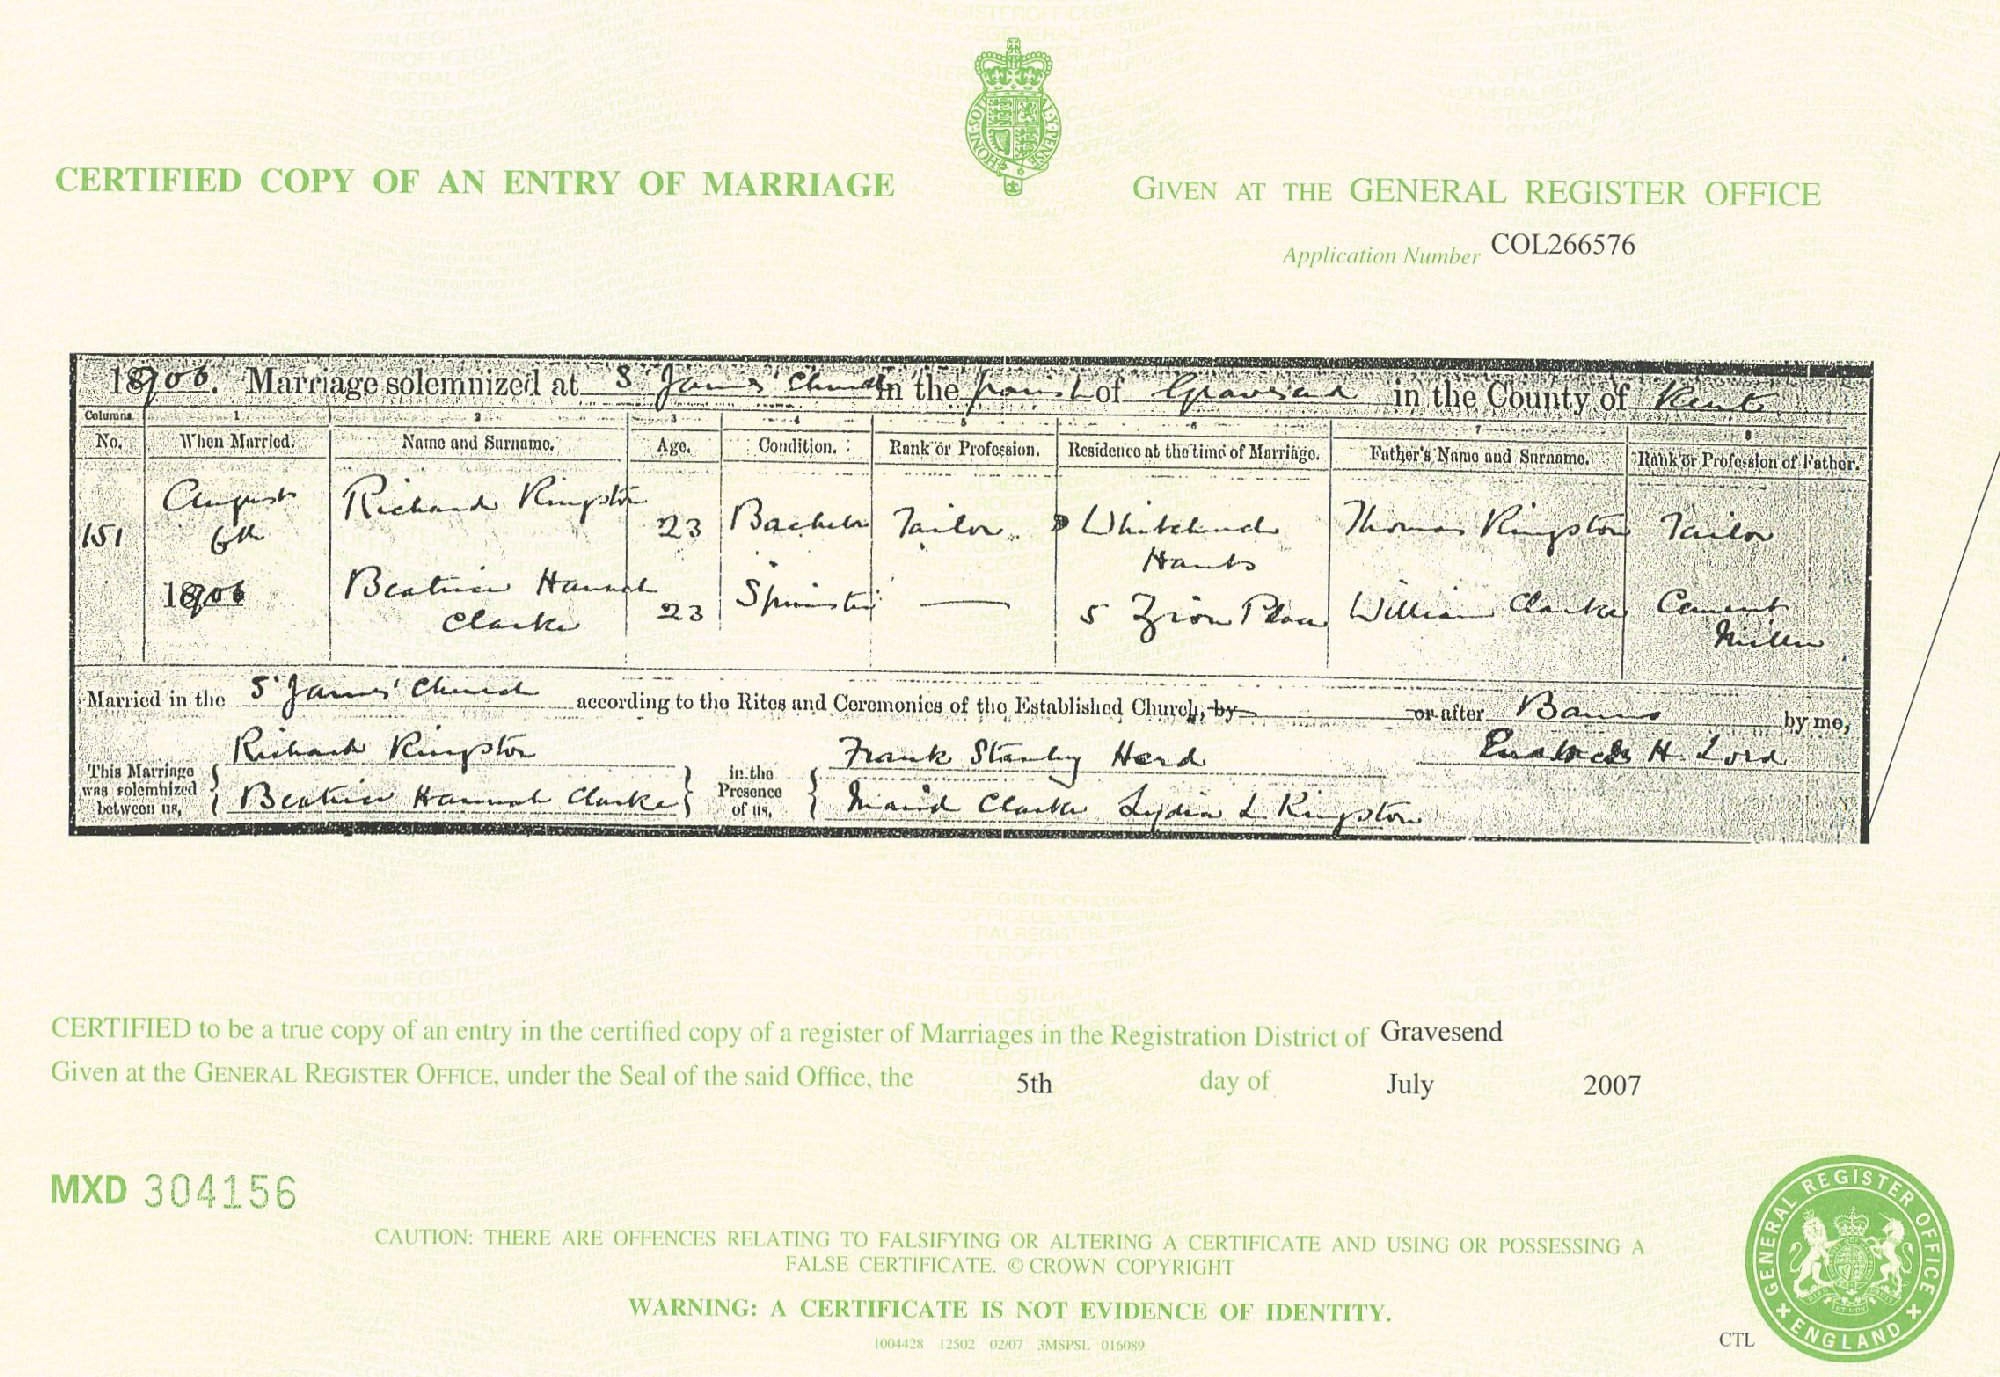 CERTIFIED COPY OF AN ENTRY OF MARRIAGE
GIVEN AT THE GENERAL REGISTER OFFICE
Application Number COL266576
1906. Marriage solemnized at St James' Church in the parish of Gravesend in the County of Kent
Columns 1 2 3 4 5 6 7 8
No. When Married. Name and Surname. Age. Condition. Rank or Profession. Residence at the time of Marriage. Father's Name and Surname. Rank or Profession of Father.
151 August 6th 1906 Richard Kingston 23 Bachelor Tailor Hants Thomas Kingston Tailor
Beatrice Hannah Clarke 23 Spinster — 5 Zion Place William Clarke Cement Miller
Married in the St James' Church according to the Rites and Ceremonies of the Established Church, by or after Banns by me,
This Marriage was solemnized between us, Richard Kingston Beatrice Hannah Clarke in the Presence of us, Frank Stanley Herd Maud Clarke Lydia L Kingston H. Lord
CERTIFIED to be a true copy of an entry in the certified copy of a register of Marriages in the Registration District of Gravesend
Given at the GENERAL REGISTER OFFICE, under the Seal of the said Office, the 5th day of July 2007
MXD 304156
CAUTION: THERE ARE OFFENCES RELATING TO FALSIFYING OR ALTERING A CERTIFICATE AND USING OR POSSESSING A
FALSE CERTIFICATE. © CROWN COPYRIGHT
WARNING: A CERTIFICATE IS NOT EVIDENCE OF IDENTITY.
1004428 12502 02/07 3MSPSL 016089
CTL
GENERAL REGISTER OFFICE
ENGLAND